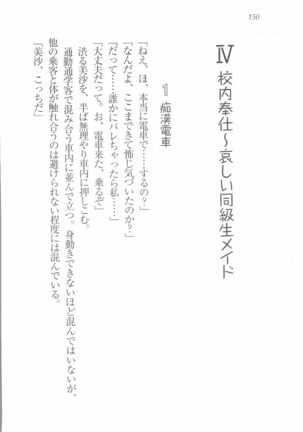 150
Ⅳ 校内奉仕～哀しい同級生メイド
1 痴漢電車
「ねえ、ほ、本当に電車で……するの？」
「なんだよ、ここまできて怖じ気づいたのか？」
「だって……誰かにバレちゃったら私……」
「大丈夫だって。お、電車来た、乗るぞ」
渋る美沙を、半ば無理やり車内に押しこむ。
通勤通学客で混み合う車内に並んで立つ。身動きできないほど混んではいないが、
他の乗客と体が触れ合うのは避けられない程度には混んでいる。
「美沙、こっちだ」